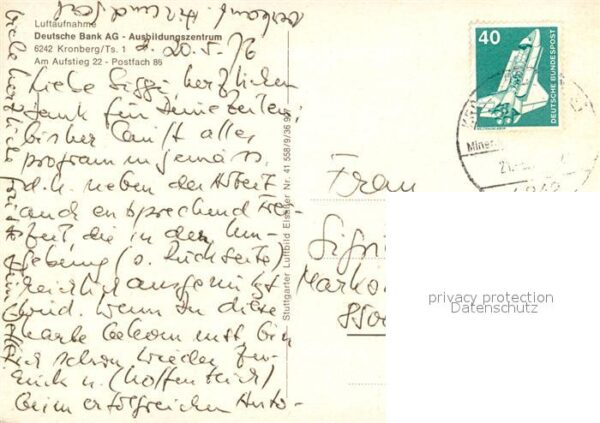 Luftaufnahme
Deutsche Bank AG - Ausbildungszentrum
6242 Kronberg/Ts. 1
Am Aufstieg 22 - Postfach 86
20.5.76
Liebe Siggi herzlichen
Dank für Deine Zeilen,
bisher läuft alles
programmgemäss,
d.h. neben der Arbeit
auch entsprechend Frei-
zeit, die in der Um-
gebung (s. Rückseite)
reichlich ausgenützt
wird. Wenn Du diese
Karte bekommst, bin
ich schon wieder zu-
rück u. (hoffentlich)
beim erfolgreichen Auto-
Stuttgarter Luftbild Elsäßer Nr. 41 558/9/36 997
40
DEUTSCHE BUNDESPOST
6242
Frau
privacy protection
Datenschutz